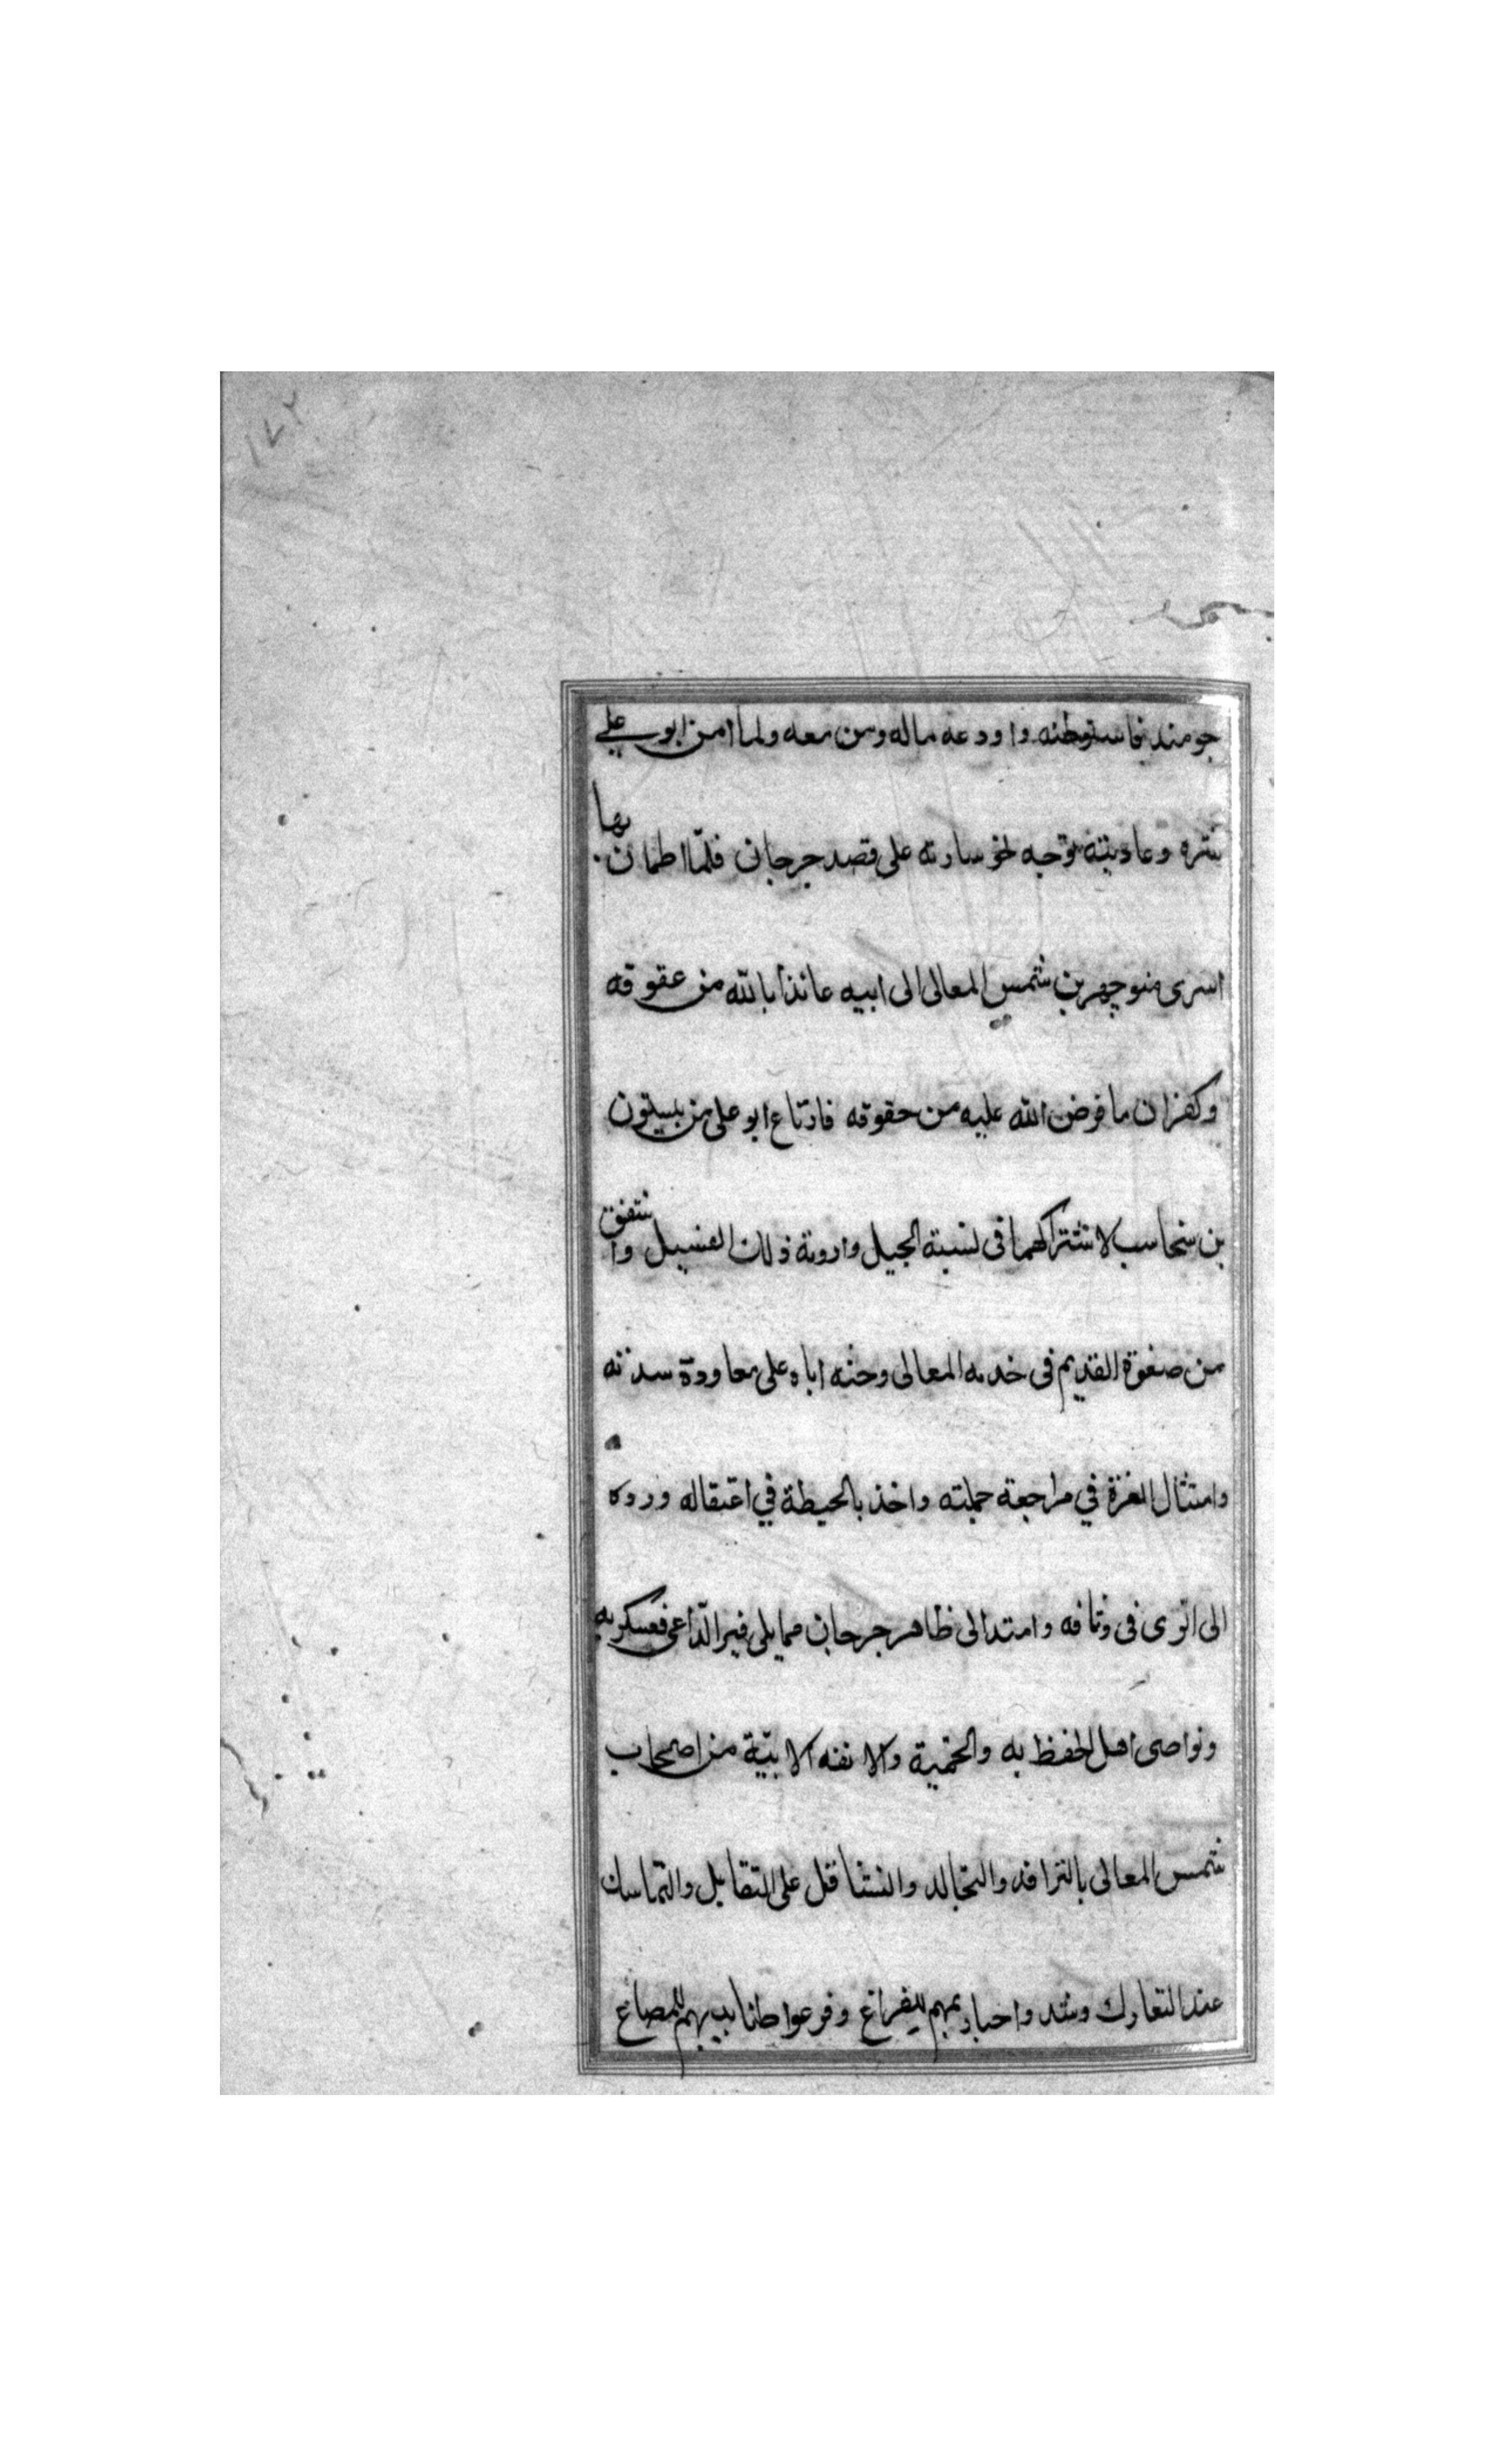 ١٧٢
جومند فاستوطنه واودعه ماله ومن معه ولما امن ابو علي
شره وعاديته توجه نحو سارية على قصد جرجان فلما اطمان بها
اسرى منوچهر بن شمس المعالى الى ابيه عائذا بالله من عقوقه
وكفران ما فرض الله عليه من حقوقه فارتاع ابو على من بيستون
بن سحاسب لاشتراكهما فى نسبة الجيل وارومة ذلك القبيل واشفق
من صفوة القديم فى خدمه المعالى وحثه اباه على معاودة سدته
وامتثال العزة في مراجعة جملته واخذ بالحيطة في اعتقاله ورده
الى الرى فى وثاقه وامتد الى ظاهر جرجان مما يلى قبر الداعى فعسكر به
ونواصى اهل الحفظ به والحمية والانفه الابية من اصحاب
شمس المعالى بالترافد والتجالد والتثاقل على التقابل والتماسك
عند التعارك وشدوا حيازيمهم للقراع وفرعوا ظنابيبهم للمصاع